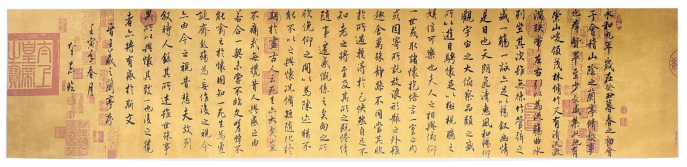 永和九年歲在癸丑暮春之初會
于會稽山陰之蘭亭脩禊事
也群賢畢至少長咸集此地有
崇山峻領茂林脩竹又有清流激
湍暎帶左右引以為流觴曲水
列坐其次雖無絲竹管弦之
盛一觴一詠亦足以暢敘幽情
是日也天朗氣清惠風和暢仰
觀宇宙之大俯察品類之盛
所以遊目騁懷足以極視聽之
娛信可樂也夫人之相與俯仰
一世或取諸懷抱悟言一室之內
或因寄所託放浪形骸之外雖
趣舍萬殊靜躁不同當其欣
於所遇蹔得於己怏然自足不
知老之將至及其所之既惓情
隨事遷感慨係之矣向之所
欣俛仰之間以為陳迹猶不
能不以之興懷況脩短隨化終
期於盡古人云死生亦大矣豈
不痛哉每攬昔人興感之由
若合一契未嘗不臨文嗟悼不
能喻之於懷固知一死生為虛
誕齊彭殤為妄作後之視今
亦由今之視昔悲夫故列
敘時人錄其所述雖世殊事
異所以興懷其致一也後之攬
者亦將有感於斯文
晉王羲之蘭亭序
壬寅年春月
太上皇帝之寶